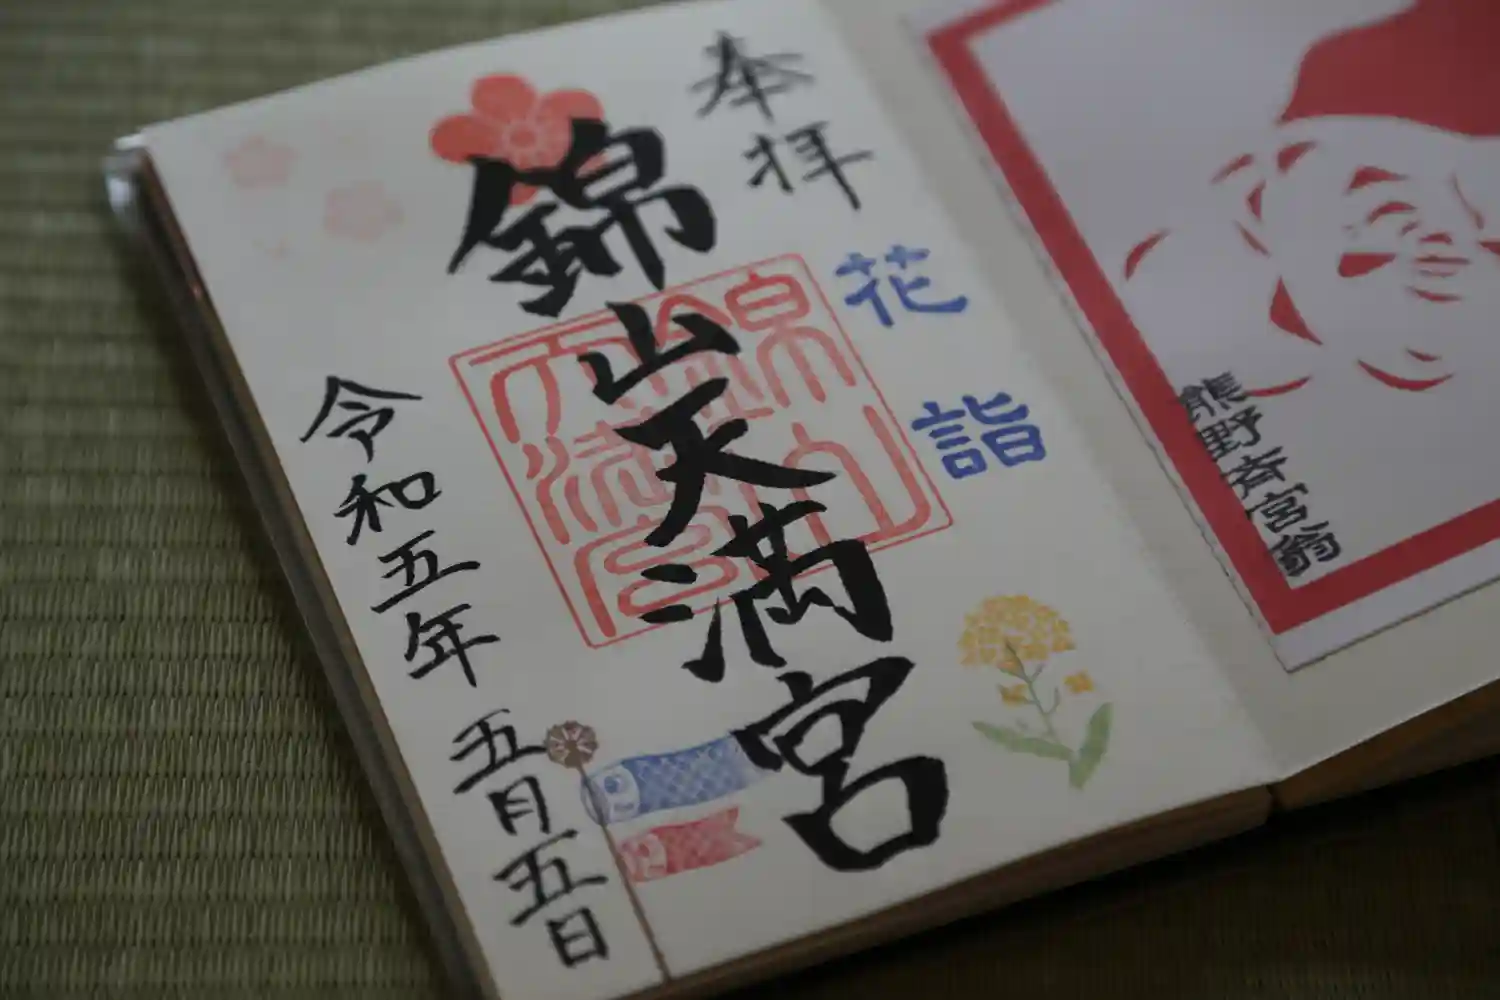 奉拝
花詣
錦山天満宮
錦山天満宮
令和五年五月五日
熊野斉宮翁